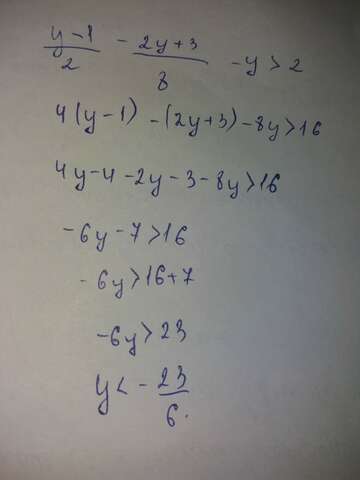 (y-1)/2 - (2y+3)/8 - y > 2
4(y-1) -(2y+3) -8y>16
4y-4 -2y -3-8y>16
-6y-7>16
-6y>16+7
-6y>23
y< - 23/6.